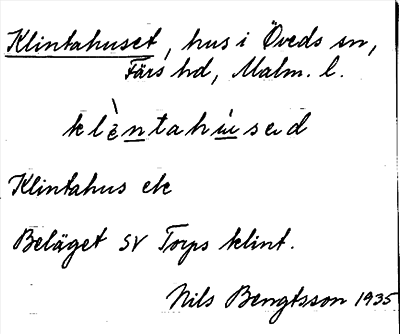 Klintahuset, hus i Öveds sn,
Färs hd, Malm. l.
klèntahúsəd
Klintahus ek
Beläget SV Torps klint.
Nils Bengtsson 1935